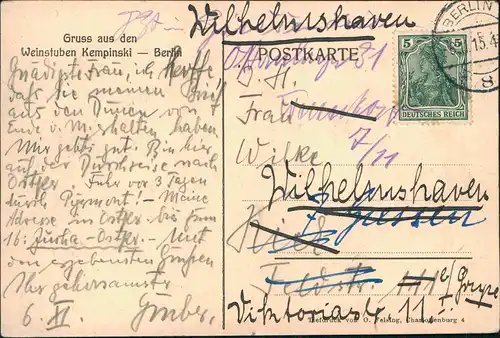 Gruss aus den
Weinstuben Kempinski — Berlin
Gnädigste Frau, ich hoffe,
daß Sie meinen Brief
aus den Dünen von
Ende v. M. erhalten haben.
Mir gehts gut. Bin hier
auf der Durchreise nach
Ostpr. Fuhr vor 3 Tagen
durch Pyrmont! — Meine
Adresse in Ostpr. bis zum
16: Ostpr. — Mit
den ergebensten Grüßen
Ihr gehorsamster
6. XI.
Wilhelmshaven
POSTKARTE
BERLIN
8
5 5
DEUTSCHES REICH
I. H.
Frau
7/11
Wilke
Wilhelmshaven
Kiel
Feldstr.
Viktoriastr. 11
Tiefdruck von O. Felsing, Charlottenburg 4